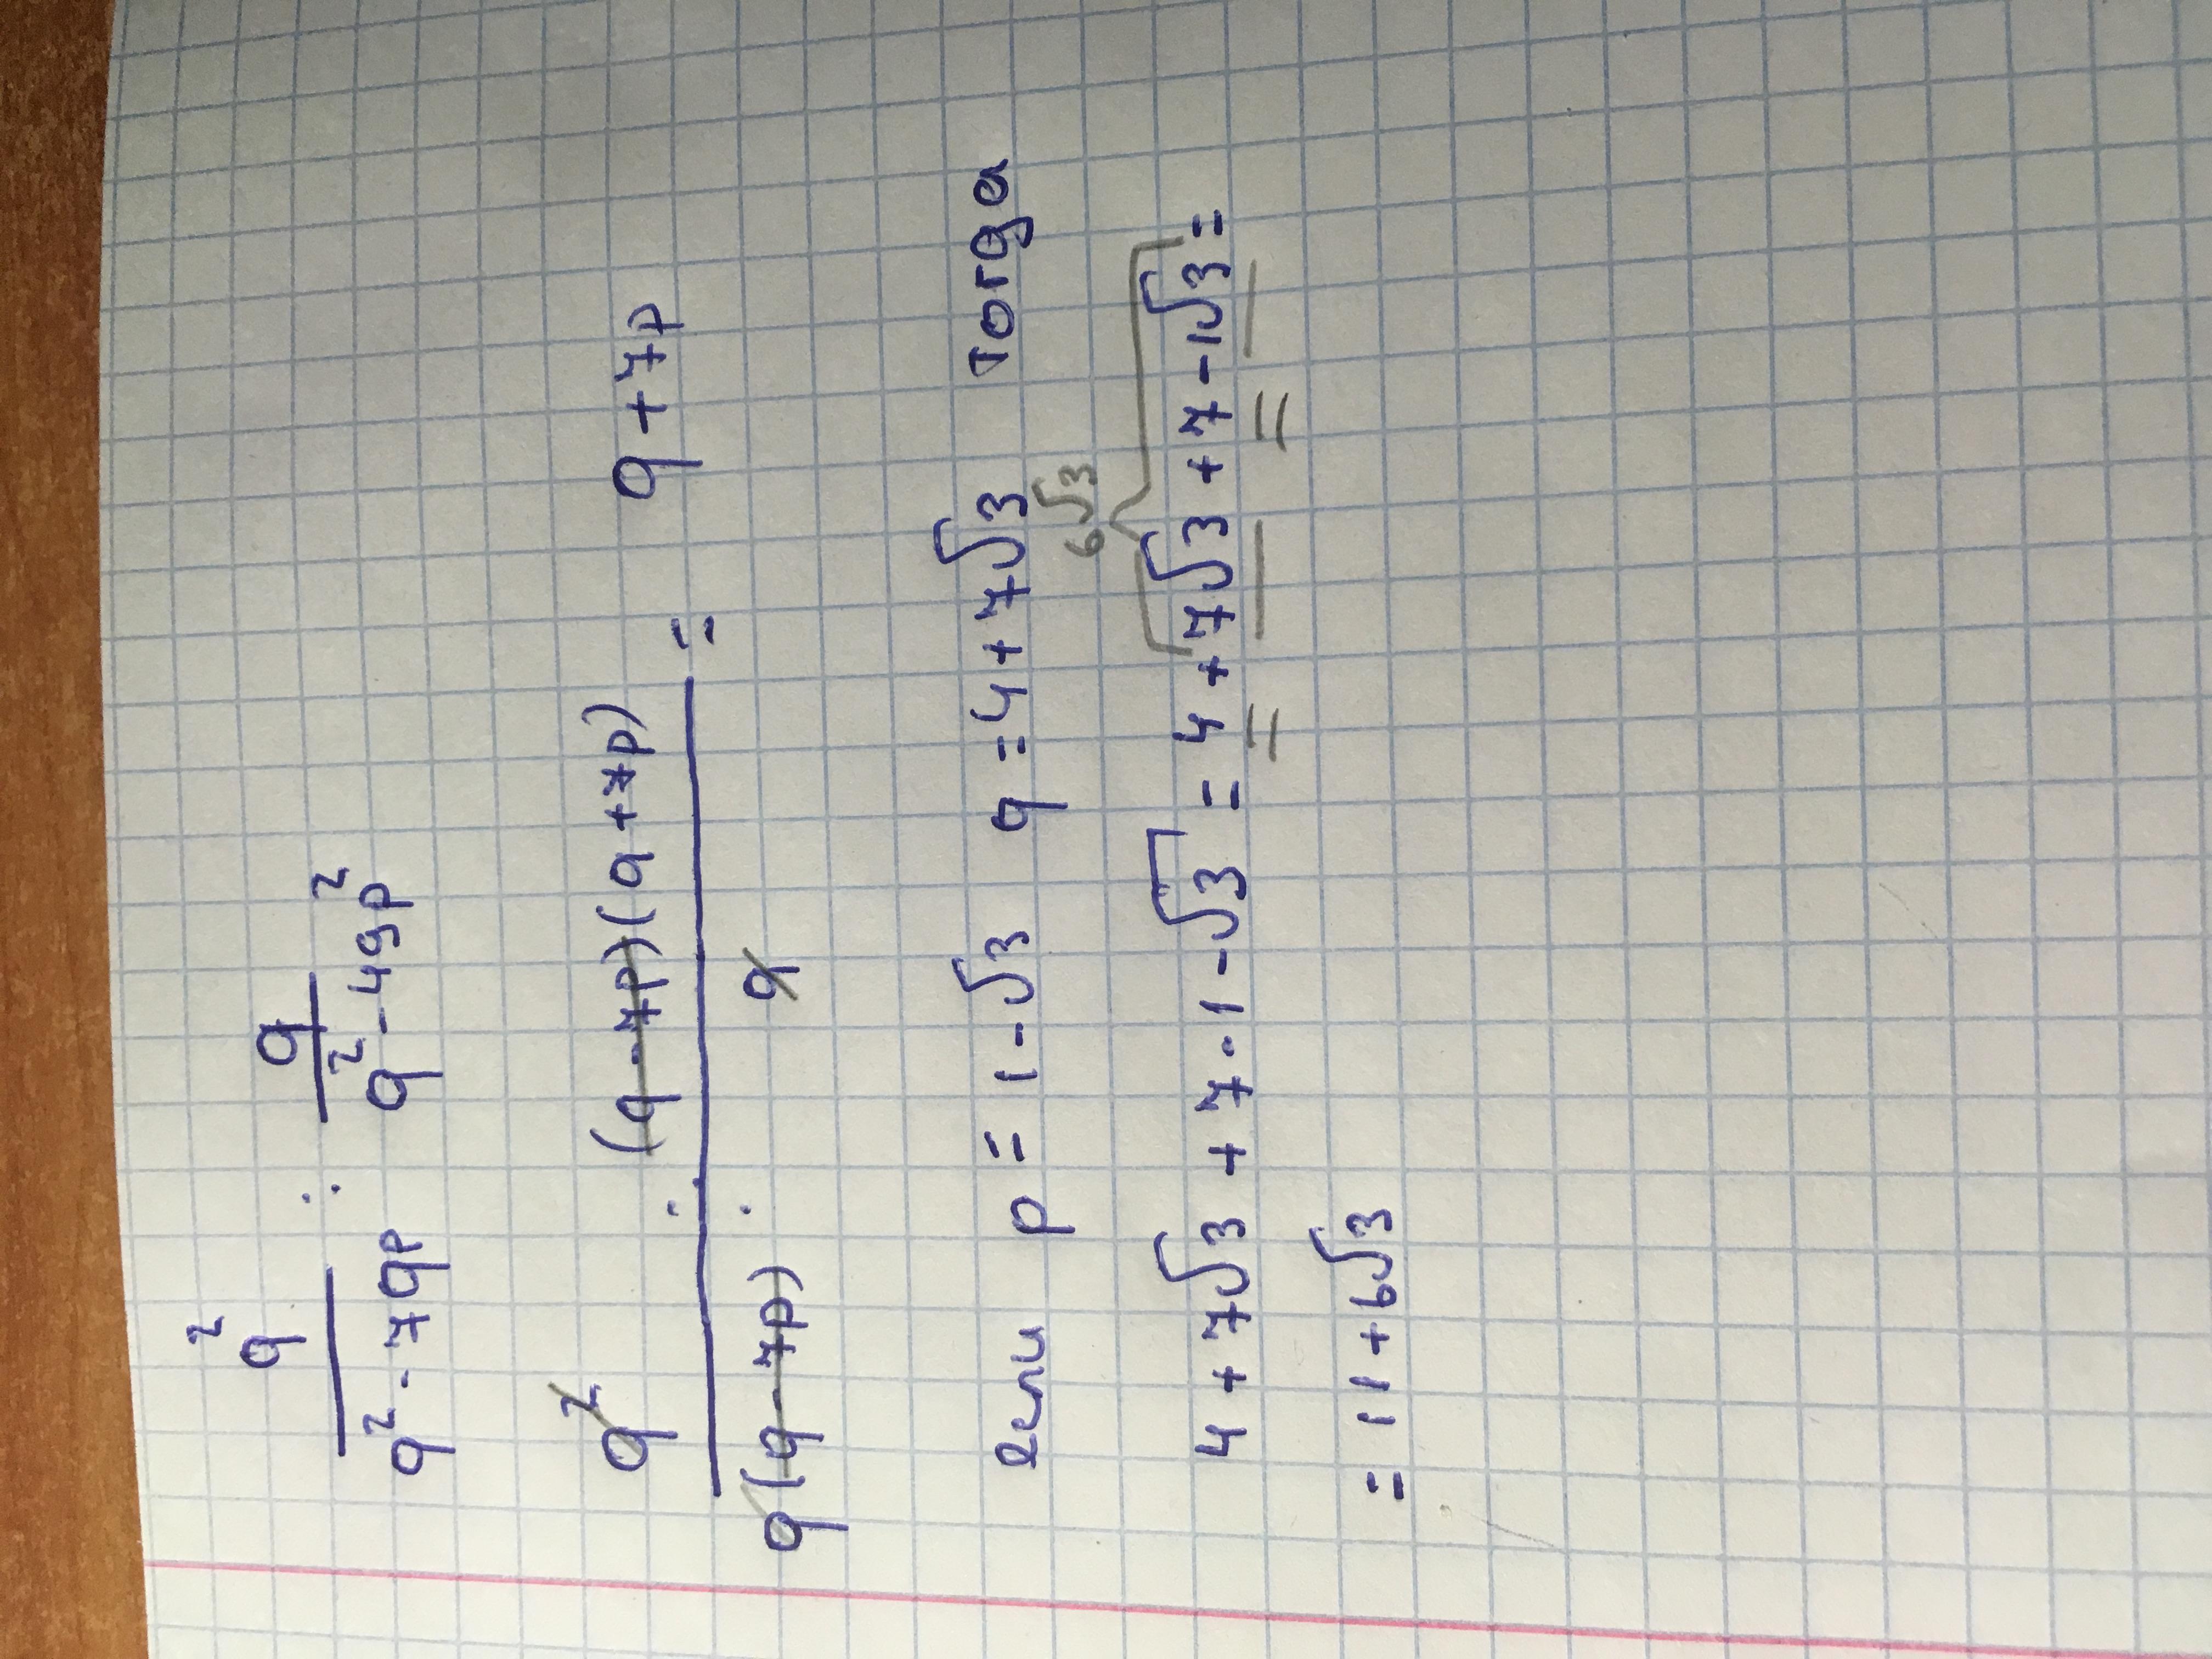 q² / (q² - 7qp) : q / (q² - 49p²)
q² / (q(q - 7p)) : (q - 7p)(q + 7p) / q = q + 7p
если p = 1 - √3 q = 4 + 7√3 тогда
6√3
4 + 7√3 + 7 · 1 - √3 = 4 + 7√3 + 7 - 1√3 =
= 11 + 6√3